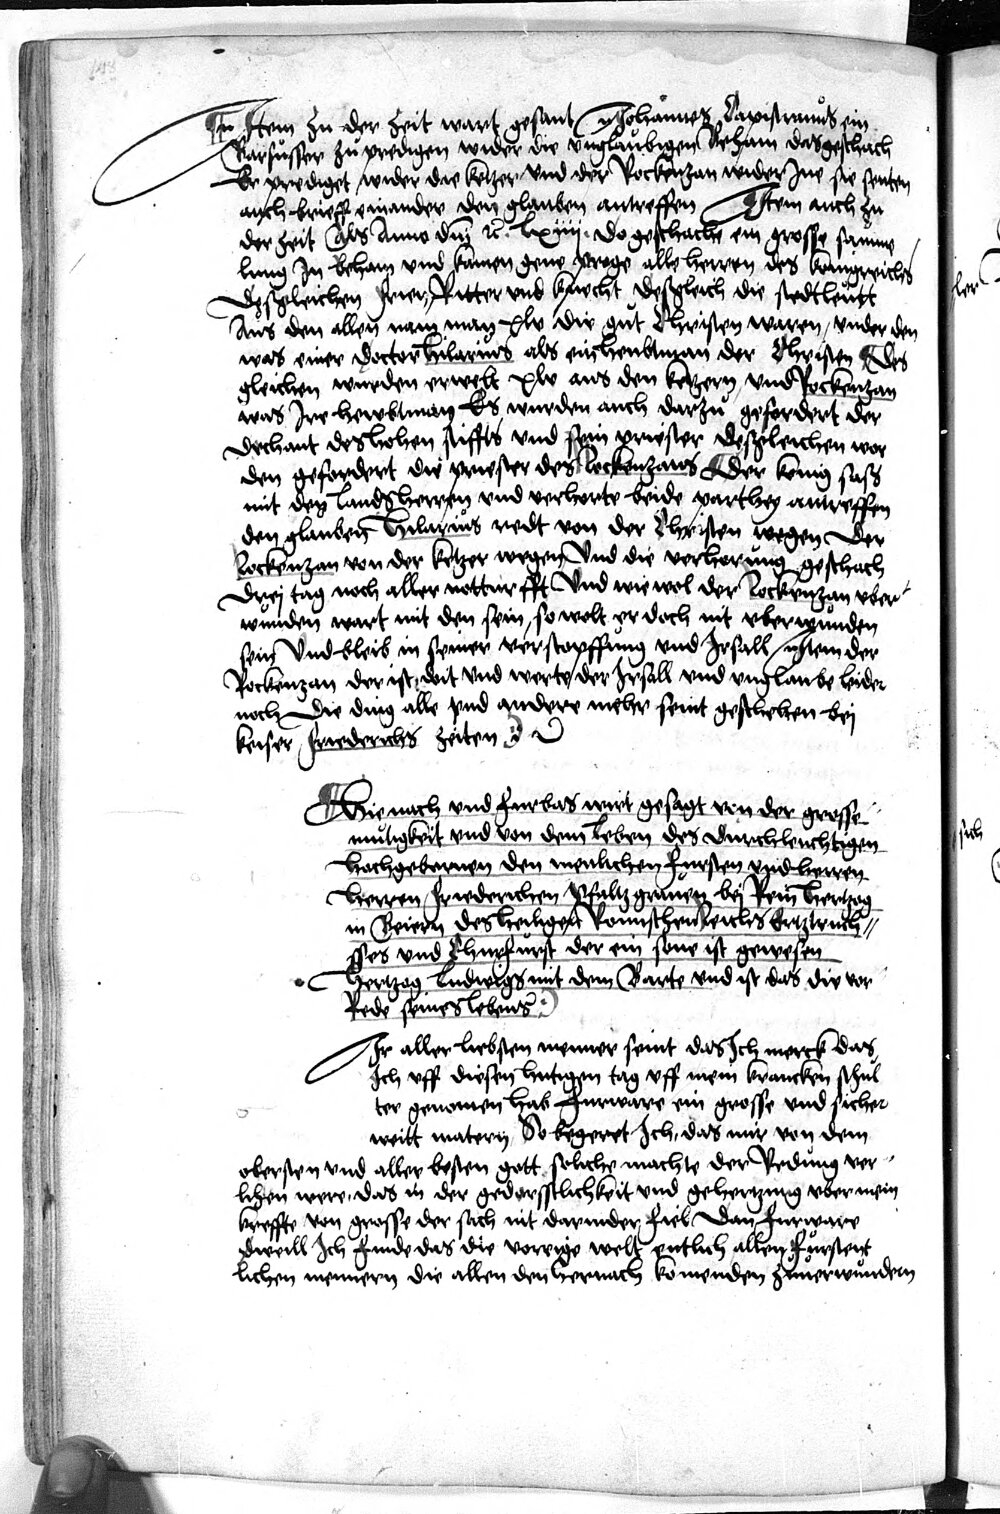 Item zu der zeit wart gesant Johannes Capistranus ein
Barfusser zu predigen wider die vnglaubigen Beham das geschach
Er prediget wider die ketzer vnd der Rockenzan wider Jne sie senten
auch brieff einander den glauben antreffen Item auch zu
der zeit Als Anno dnj rc. lxiiij. do geschache ein grosse samme
lung In Beham vnd kamen gene Prage alle herren des konigreichs
desgleichen frien Ritter vnd knecht desgleich die stedtleutt
Aus den allen nam man xlv die gut Christen waren, vnder den
was einer doctor hilarius als ein heubtman der Christen Des
gleichen wurden erwelt xlv aus den ketzern, vnd Rockenzan
was Jre hewbtman Es wurden auch darzu gefordert der
dechant des hohen stiffts vnd sein priester desgleichen wor
den gefordert die priester des Rockenzans Der konig sass
mit den landsherren vnd verhorte beide parthey antreffen
den glauben hilarius redt von der Christen wegen Der
Rockenzan von der ketzer wegen Vnd die verhorung geschach
drej tag noch aller notturfft Vnd wie wol der Rockenzan vber
wunden wart mit den sein, so wolt er doch nit vberwunden
sein Vnd bleib in seiner verstopffung vnd Irsall Item der
Rockenzan der ist doit vnd werte der Irsall vnd vnglaube leider
noch Die ding alle vnd andere meher seint geschehen bej
keiser friederichs zeiten
Hie nach vnd furbas wirt gesagt von der grosse
mutigkeit vnd von dem leben des durchleuchtigen
hochgebornen den menlichen fursten vnd herren
herren friederichen Pfaltzgrauen bej Rein hertzog
in Beiern des heiligen Romischen Reichs Ertztruch
sses vnd Churfurst der ein sone ist gewesen
hertzog ludwigs mit dem Barte vnd ist das die vor
Rede seines lebens
Ir aller liebsten menner seint das Ich merck das
Ich vff diesen hutigen tag vff mein krancken schul
ter genomen hab furware ein grosse vnd sicher
weitt matern So begeret Ich, das mir von dem
obersten vnd aller besten gott soliche machte der Redung ver
lihen were, das in der gedorsstlichkeit vnd gehertzung vber mein
kreffte von grosse der sach nit darnider fiel Dan furware
dweill Ich finde das die vorrige welt entlich allen furstent
lichen mennern die allen den hernach komenden zuuerwundern